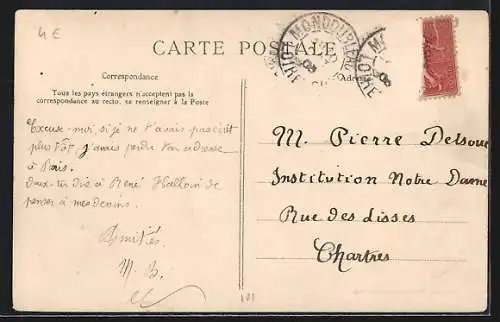 4 €
CARTE POSTALE
MONDOUBLEAU
Correspondance
Tous les pays étrangers n'acceptent pas la
correspondance au recto, se renseigner à la Poste
Excuse-moi, si je ne t'avais pas écrit
plus tôt j'avais perdu ton adresse
à Paris.
à René
penser à mes devoirs.
Amitiés.
M. B.
M. Pierre
Institution Notre Dame
Rue des Lisses
Chartres